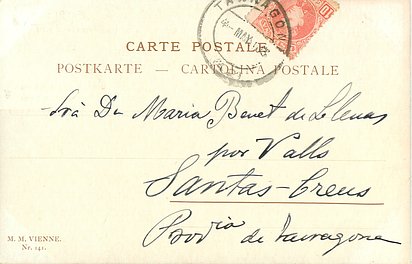 TARRAGONA
MAY
10
CARTE POSTALE
POSTKARTE — CARTOLINA POSTALE
Srá Dª Maria Benet de Llenas
por Valls
Santas-Creus
Provia de Tarragona
M. M. VIENNE.
Nr. 141.